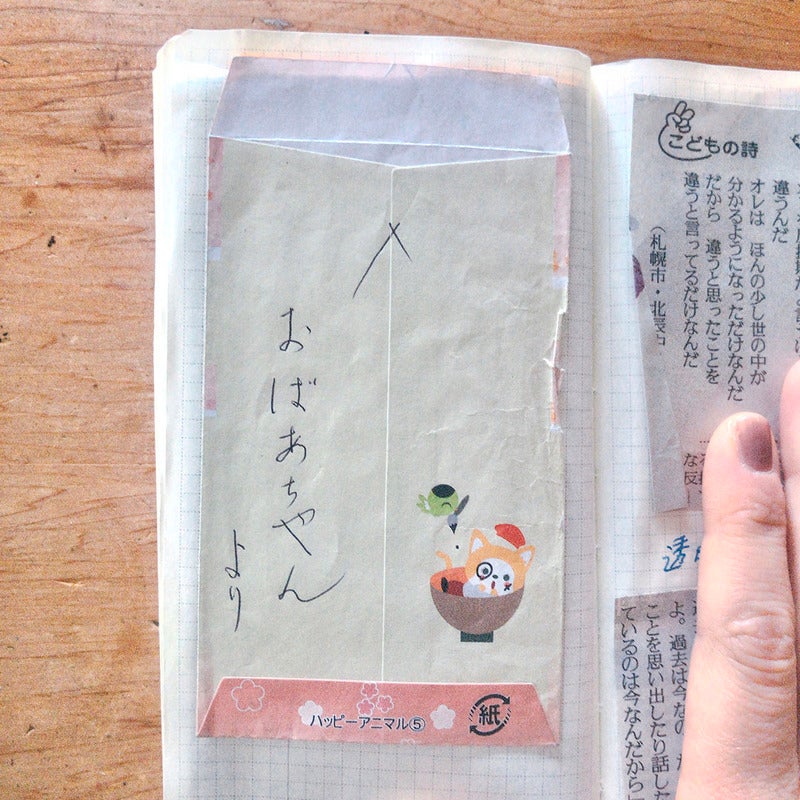 〆
おばあちゃん
より
ハッピーアニマル⑤
紙
こどもの詩
違うんだ
オレは ほんの少し世の中が
分かるようになっただけなんだ
だから 違うと思ったことを
違うと言ってるだけなんだ
（札幌市・北辰中
よ。過去は今なの
ことを思い出したり話した
ているのは今なんだから